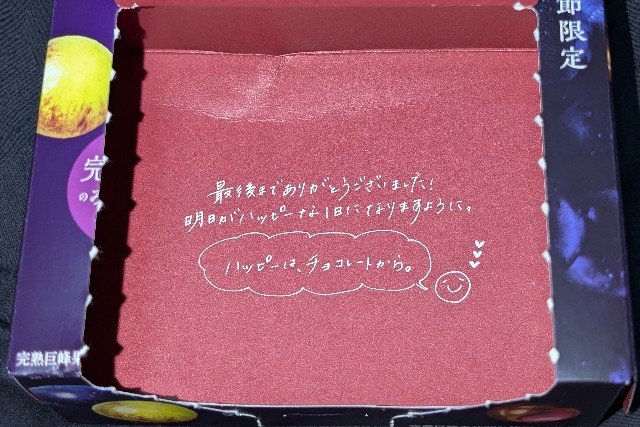 節限定
最後までありがとうございました!
明日がハッピーな1日になりますように。
ハッピーは、チョコレートから。
完
の
完熟巨峰果